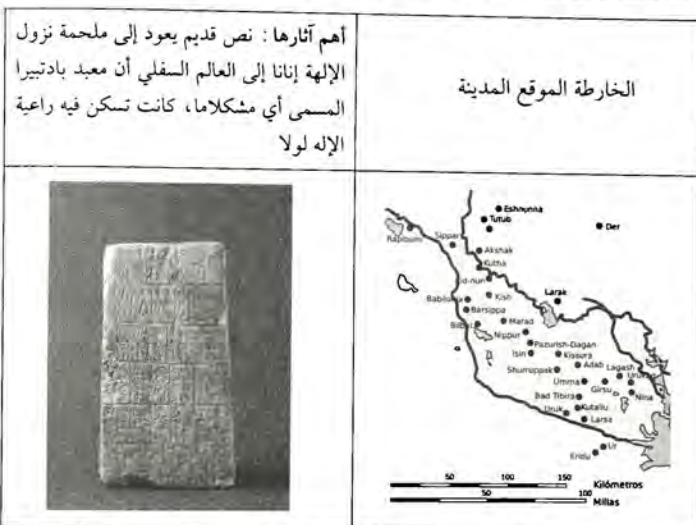 أهم آثارها : نص قديم يعود إلى ملحمة نزول
الإلهة إنانا إلى العالم السفلي أن معبد بادتبيرا
المسمى أي مشكلاما، كانت تسكن فيه راعية
الإله لولا
الخارطة الموقع المدينة
Eshnunna
Tutub
Der
Rapiqum
Sippar
Akshak
Kutha
Kid-nun
Larak
Babilonia
Kish
Barsippa
Marad
Nippur
Pazurish-Dagan
Isin
Kissura
Adab
Lagash
Shuruppak
Umma
Girsu
Nina
Bad Tibira
Uruk
Kutallu
Larsa
Ur
Eridu
50
100
150
Kilómetros
50
100
Millas